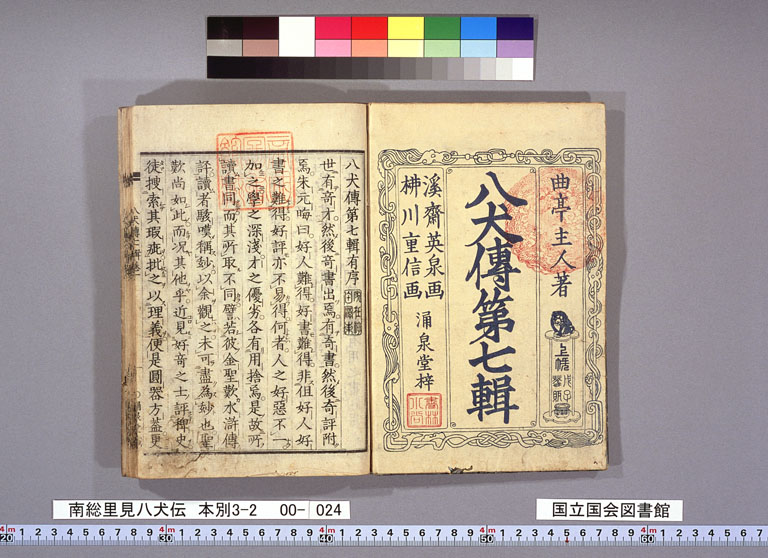 曲亭主人著
八犬傳第七輯
上帙
戊子
發販
溪齋英泉画
柳川重信画
涌泉堂梓
八犬傳第七輯有序
世有奇才然後奇書出焉有奇書然後奇評附
焉朱元晦曰好人難得好書難得非但好人好
書之難得好評亦不易得何者人之好惡不一
加之學之深淺才之優劣各有用捨焉是故所
讀書同而其所取不同譬若彼金聖歎水滸傳
評讀者駭嘆稱妙以余觀之未可盡為妙也聖
歎尚如此而况其他乎近見好奇之士評稗史
徒搜索其瑕疵批之以理義使是圓器方蓋更
南総里見八犬伝 本別3-2 00- 024
国立国会図書館